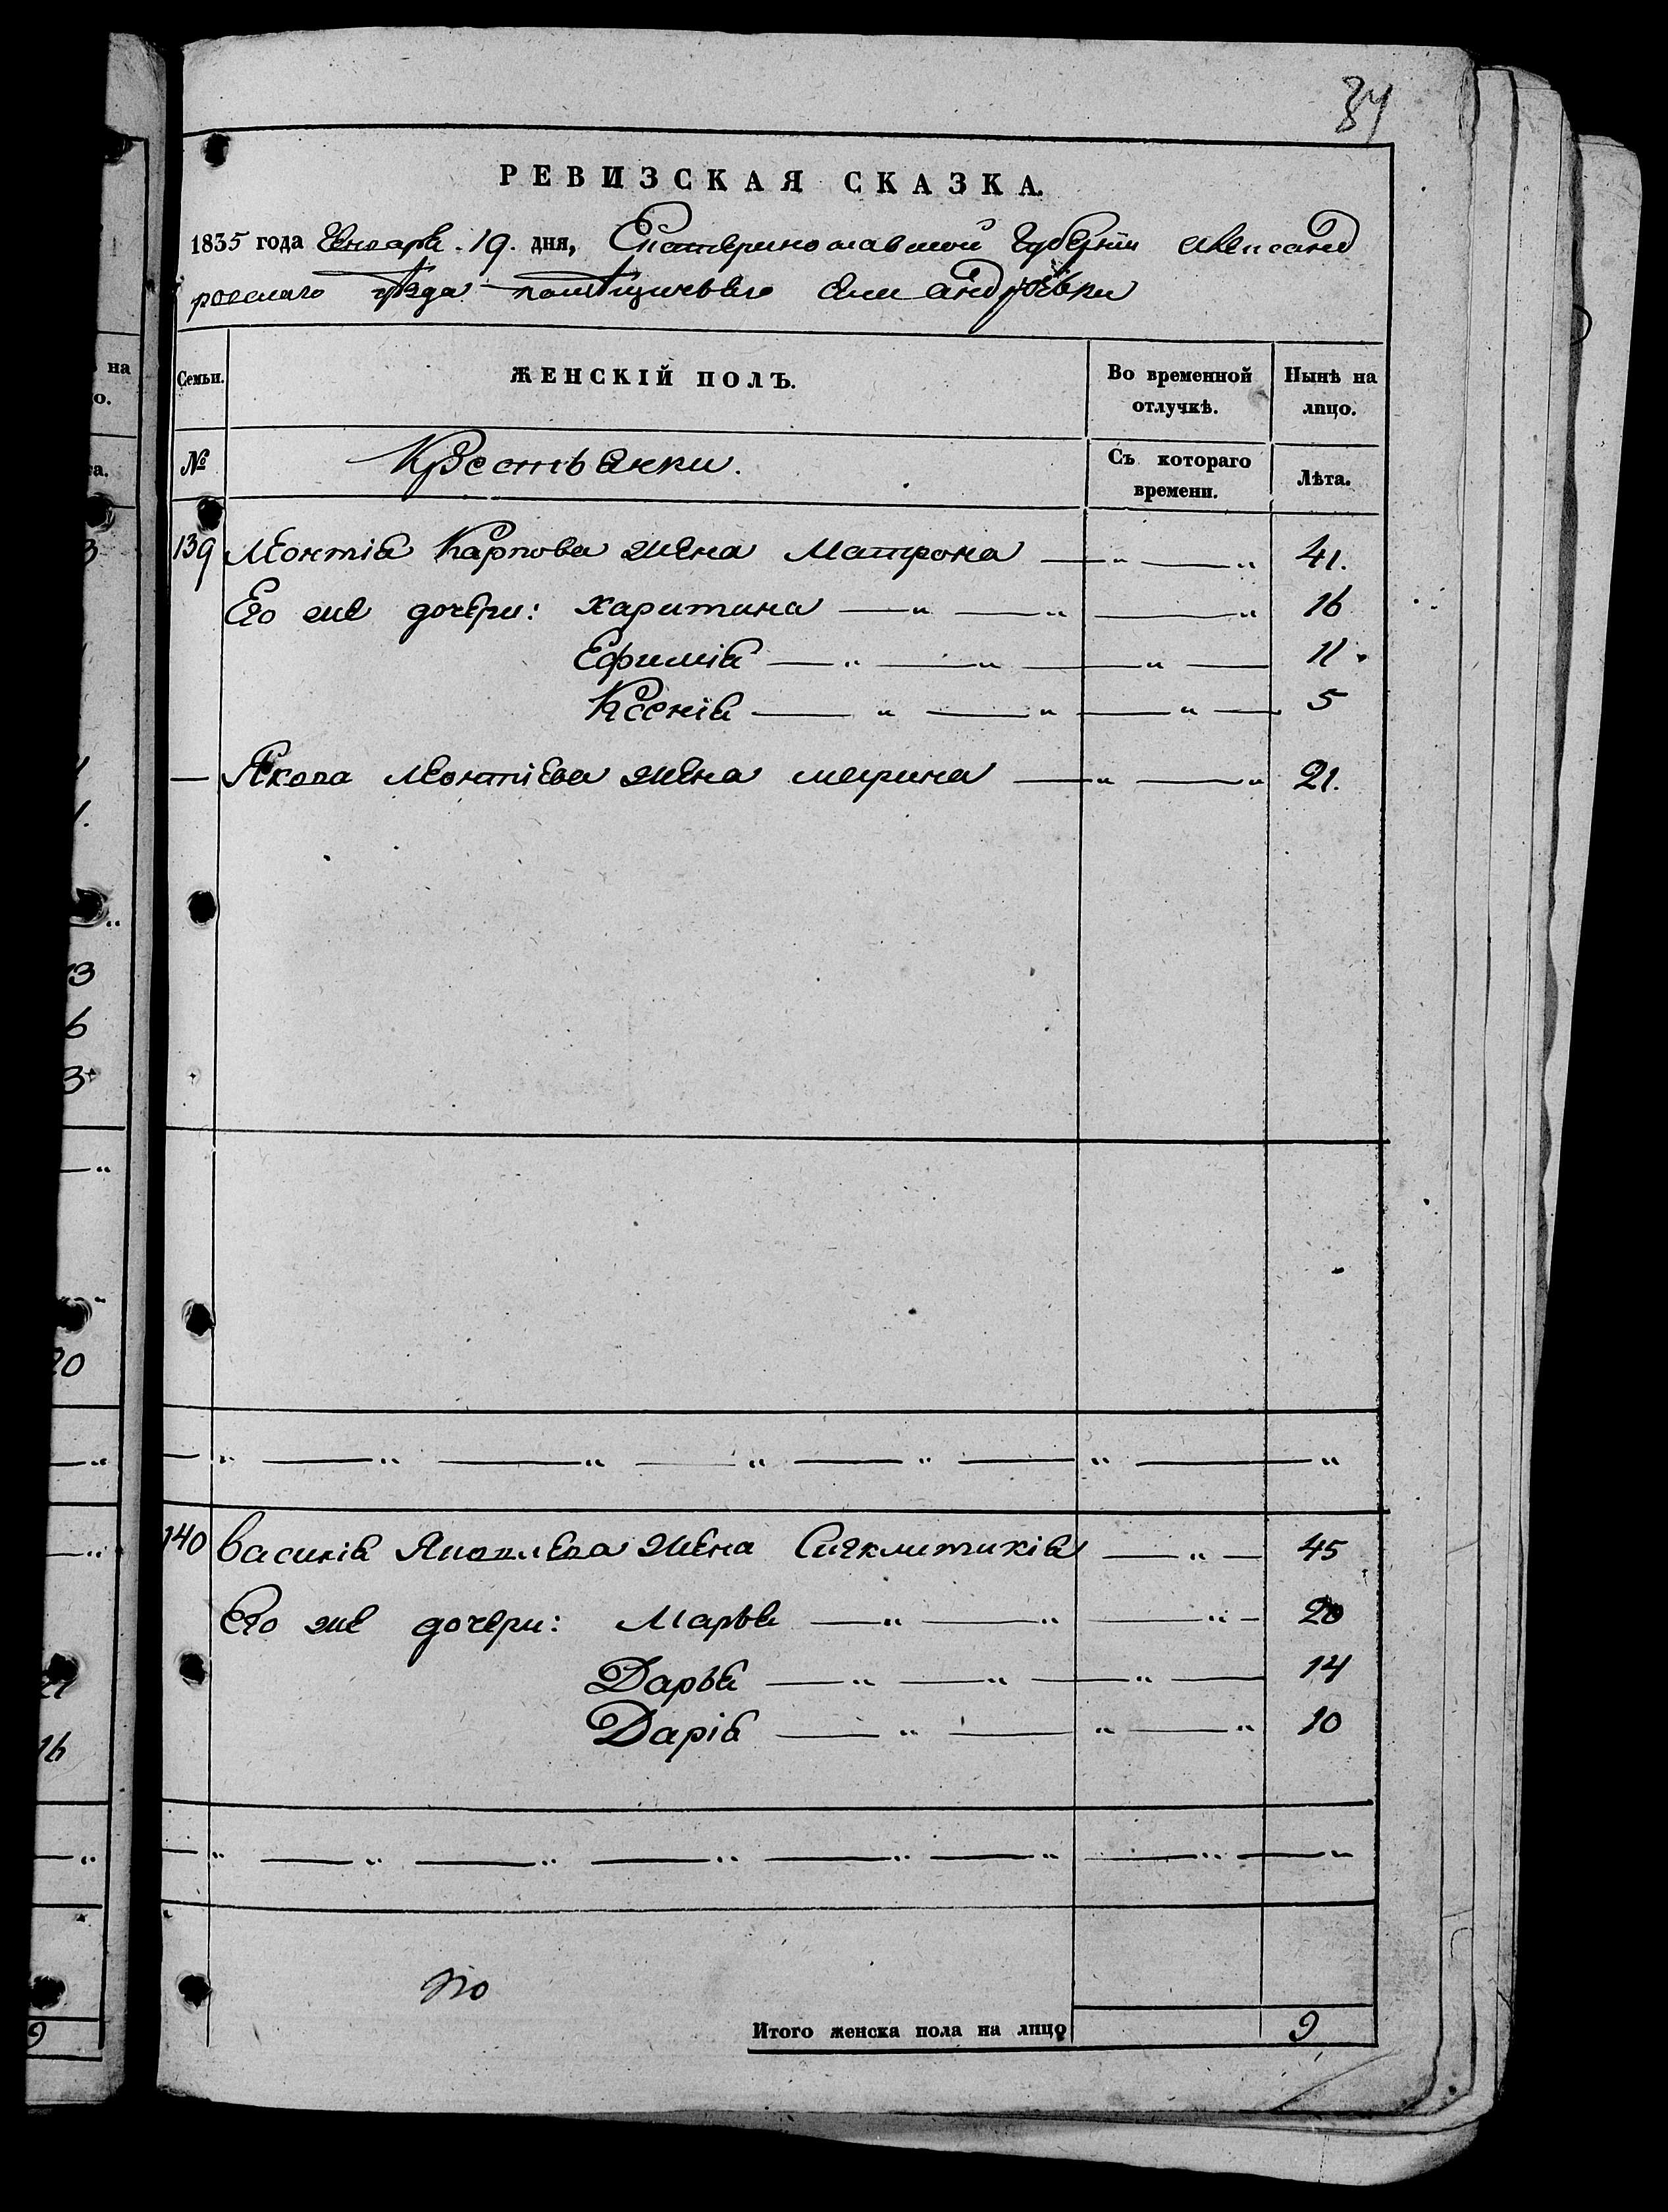 34
РЕВИЗСКАЯ СКАЗКА.
1835 года Генваря 19. дня, Екатеринославской Губерніи Александ
ровскаго уѣзда
Семьи. ЖЕНСКІЙ ПОЛЪ. Во временной отлучкѣ. Нынѣ на лицо.
№ Крестьянки. Съ котораго времени. Лѣта.
139 Леонтія Карпова жена Матрона — „ — „ 41.
Его же дочери: Харитина — „ — „ — „ 16
Ефимія — „ — „ — „ — 11.
Ксенія — „ — „ — „ — 5
— Якова Леонтіева жена марина — „ — „ 21.
— „ — „ — „ — „ — „ — „ — „
140 Василія Яковлева жена — „ — 45
Его же дочери: Марья — „ — „ — „ — 20
Дарья — „ — „ — „ — 14
Дарія — „ — „ — „ 10
— „ — „ — „ — „ — „ — „ — „ — „
Итого женска пола на лицо 9
на
о.
та.
3
6
3
20
16
9